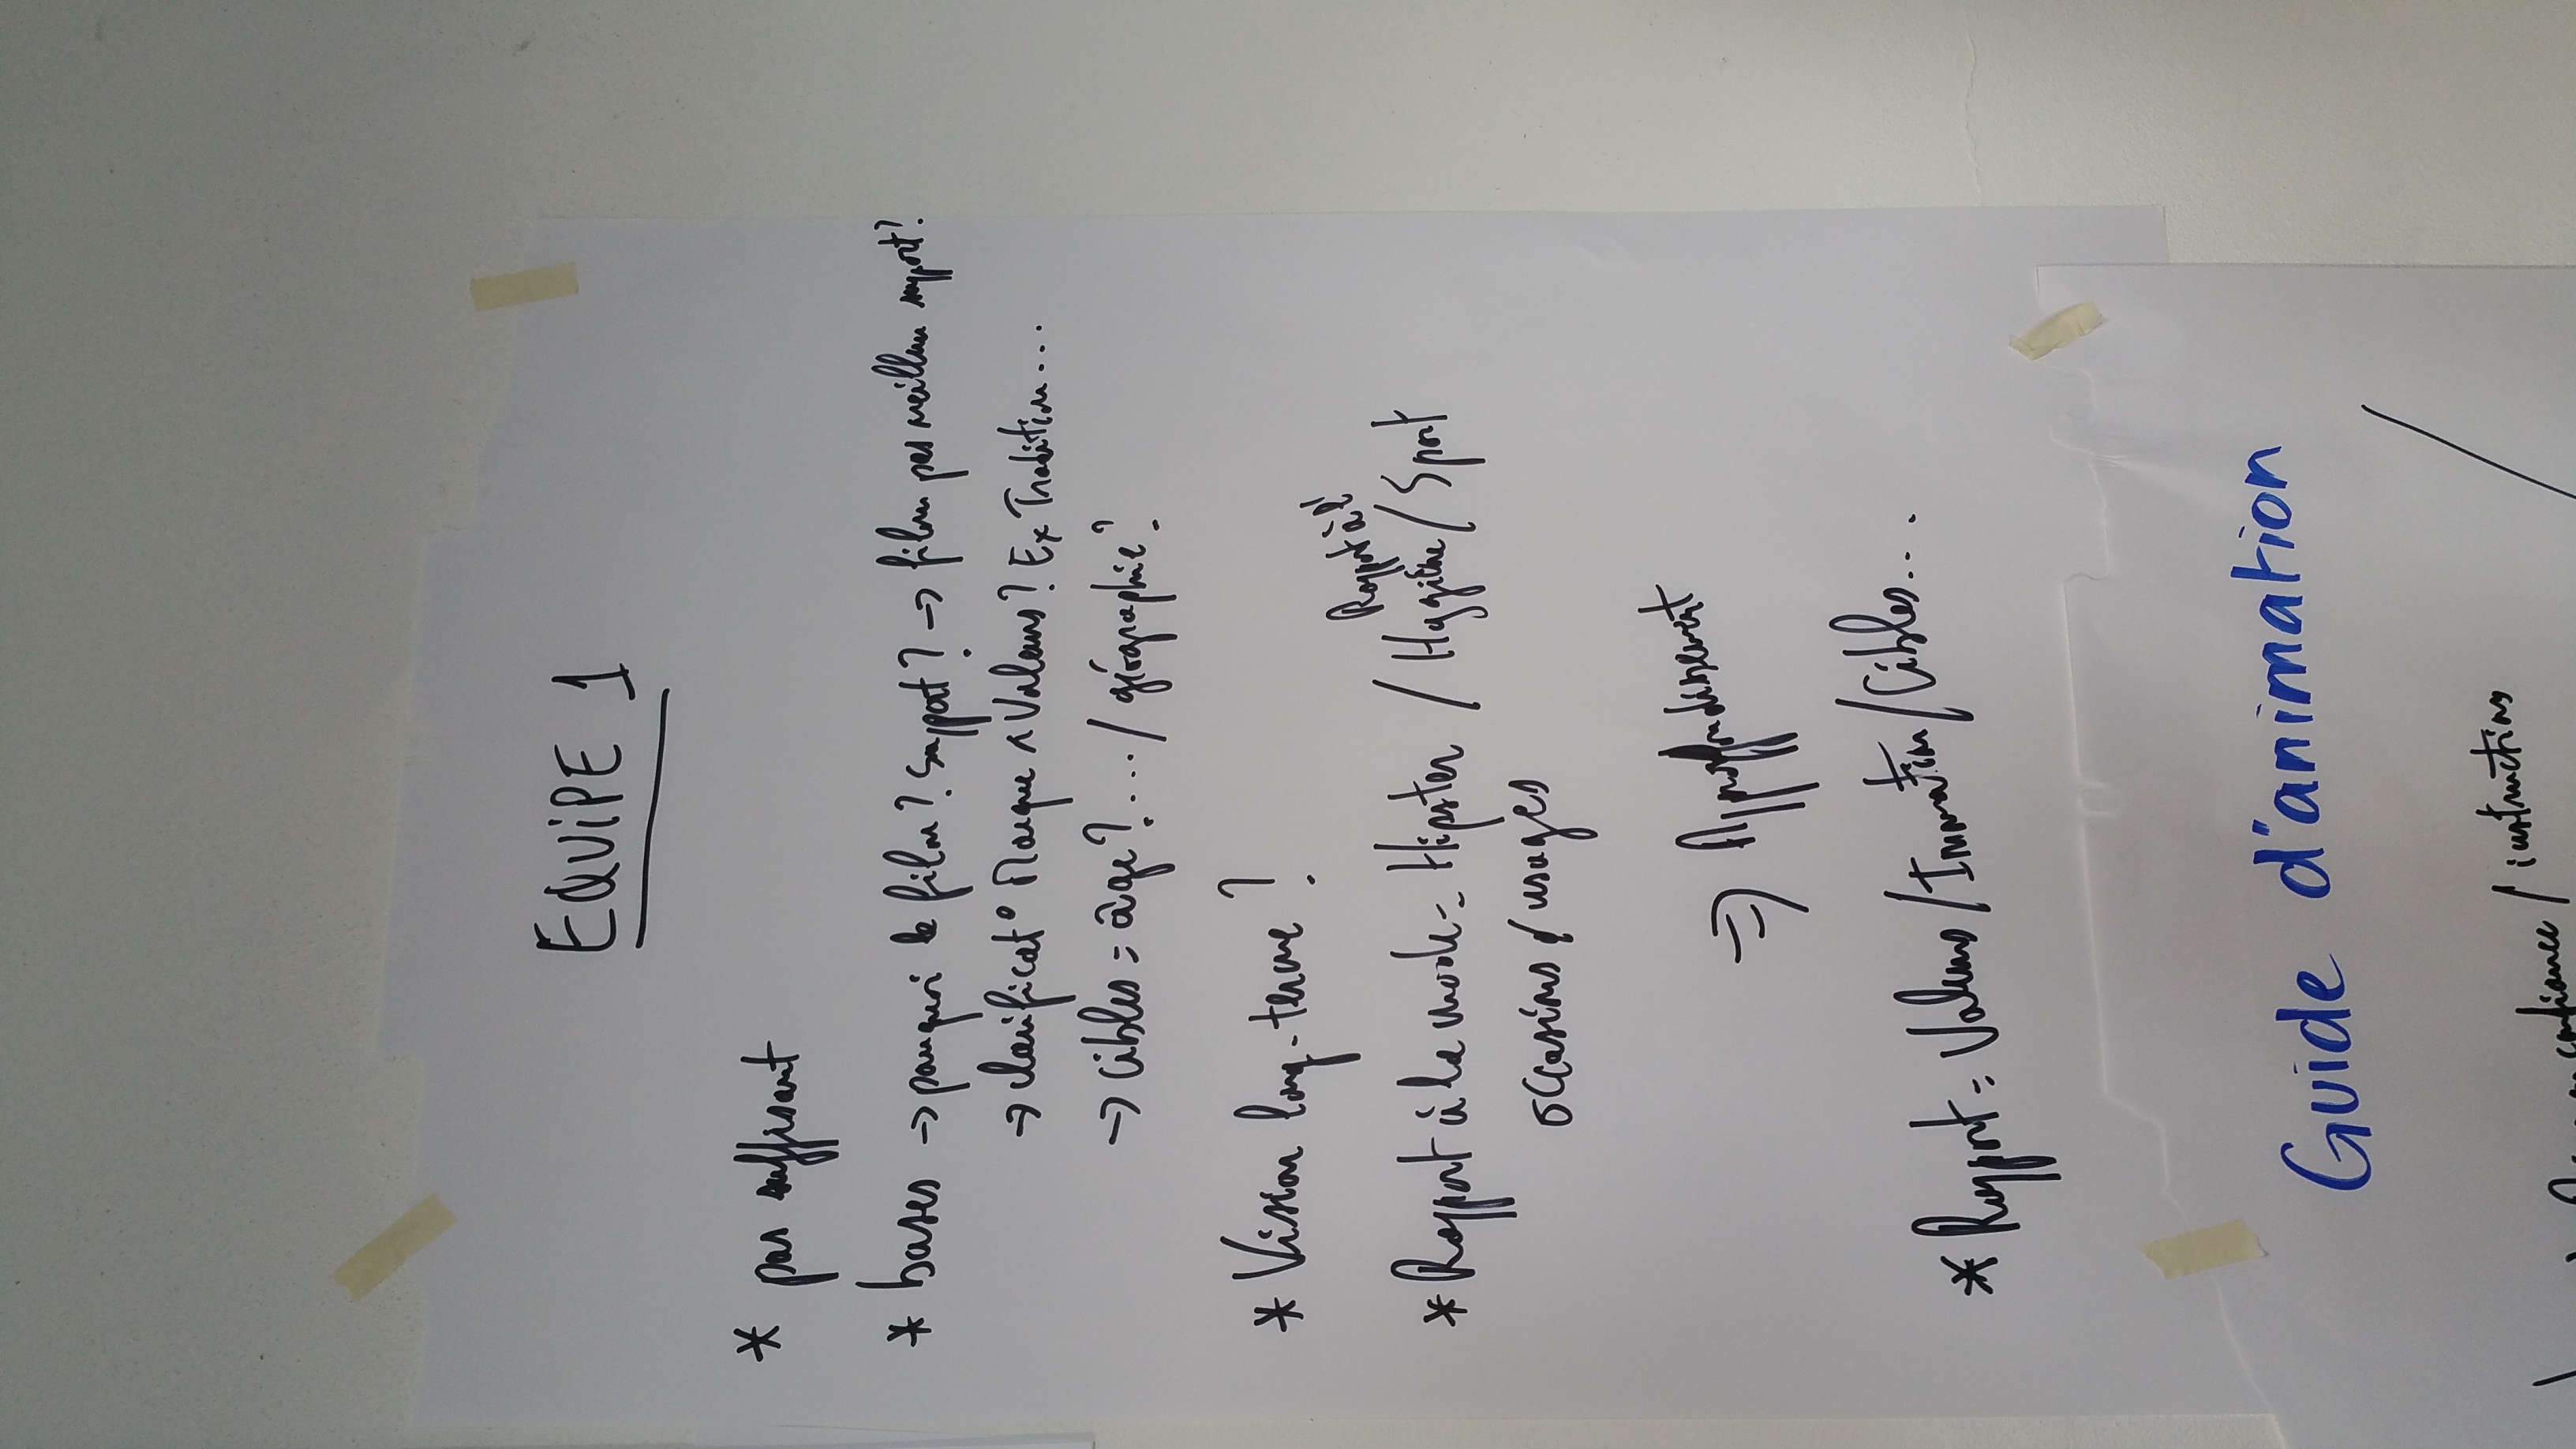 EQUIPE 1
* pas suffisant
* bases → pourquoi le film? Support? → film pas meilleur support?
→ clarificat° Marque ^ Valeurs? Ex Tradition...
→ cibles = âge? .../ géographie?
* Vision long-terme?
Rapport à l'
* Rapport à la mode = Hipster / Hygiène / Sport
occasions / usages
⇒ Approfondissement
* Rapport = Valeurs / Innovation / Cibles...
Guide d'animation
/ instructions
confiance